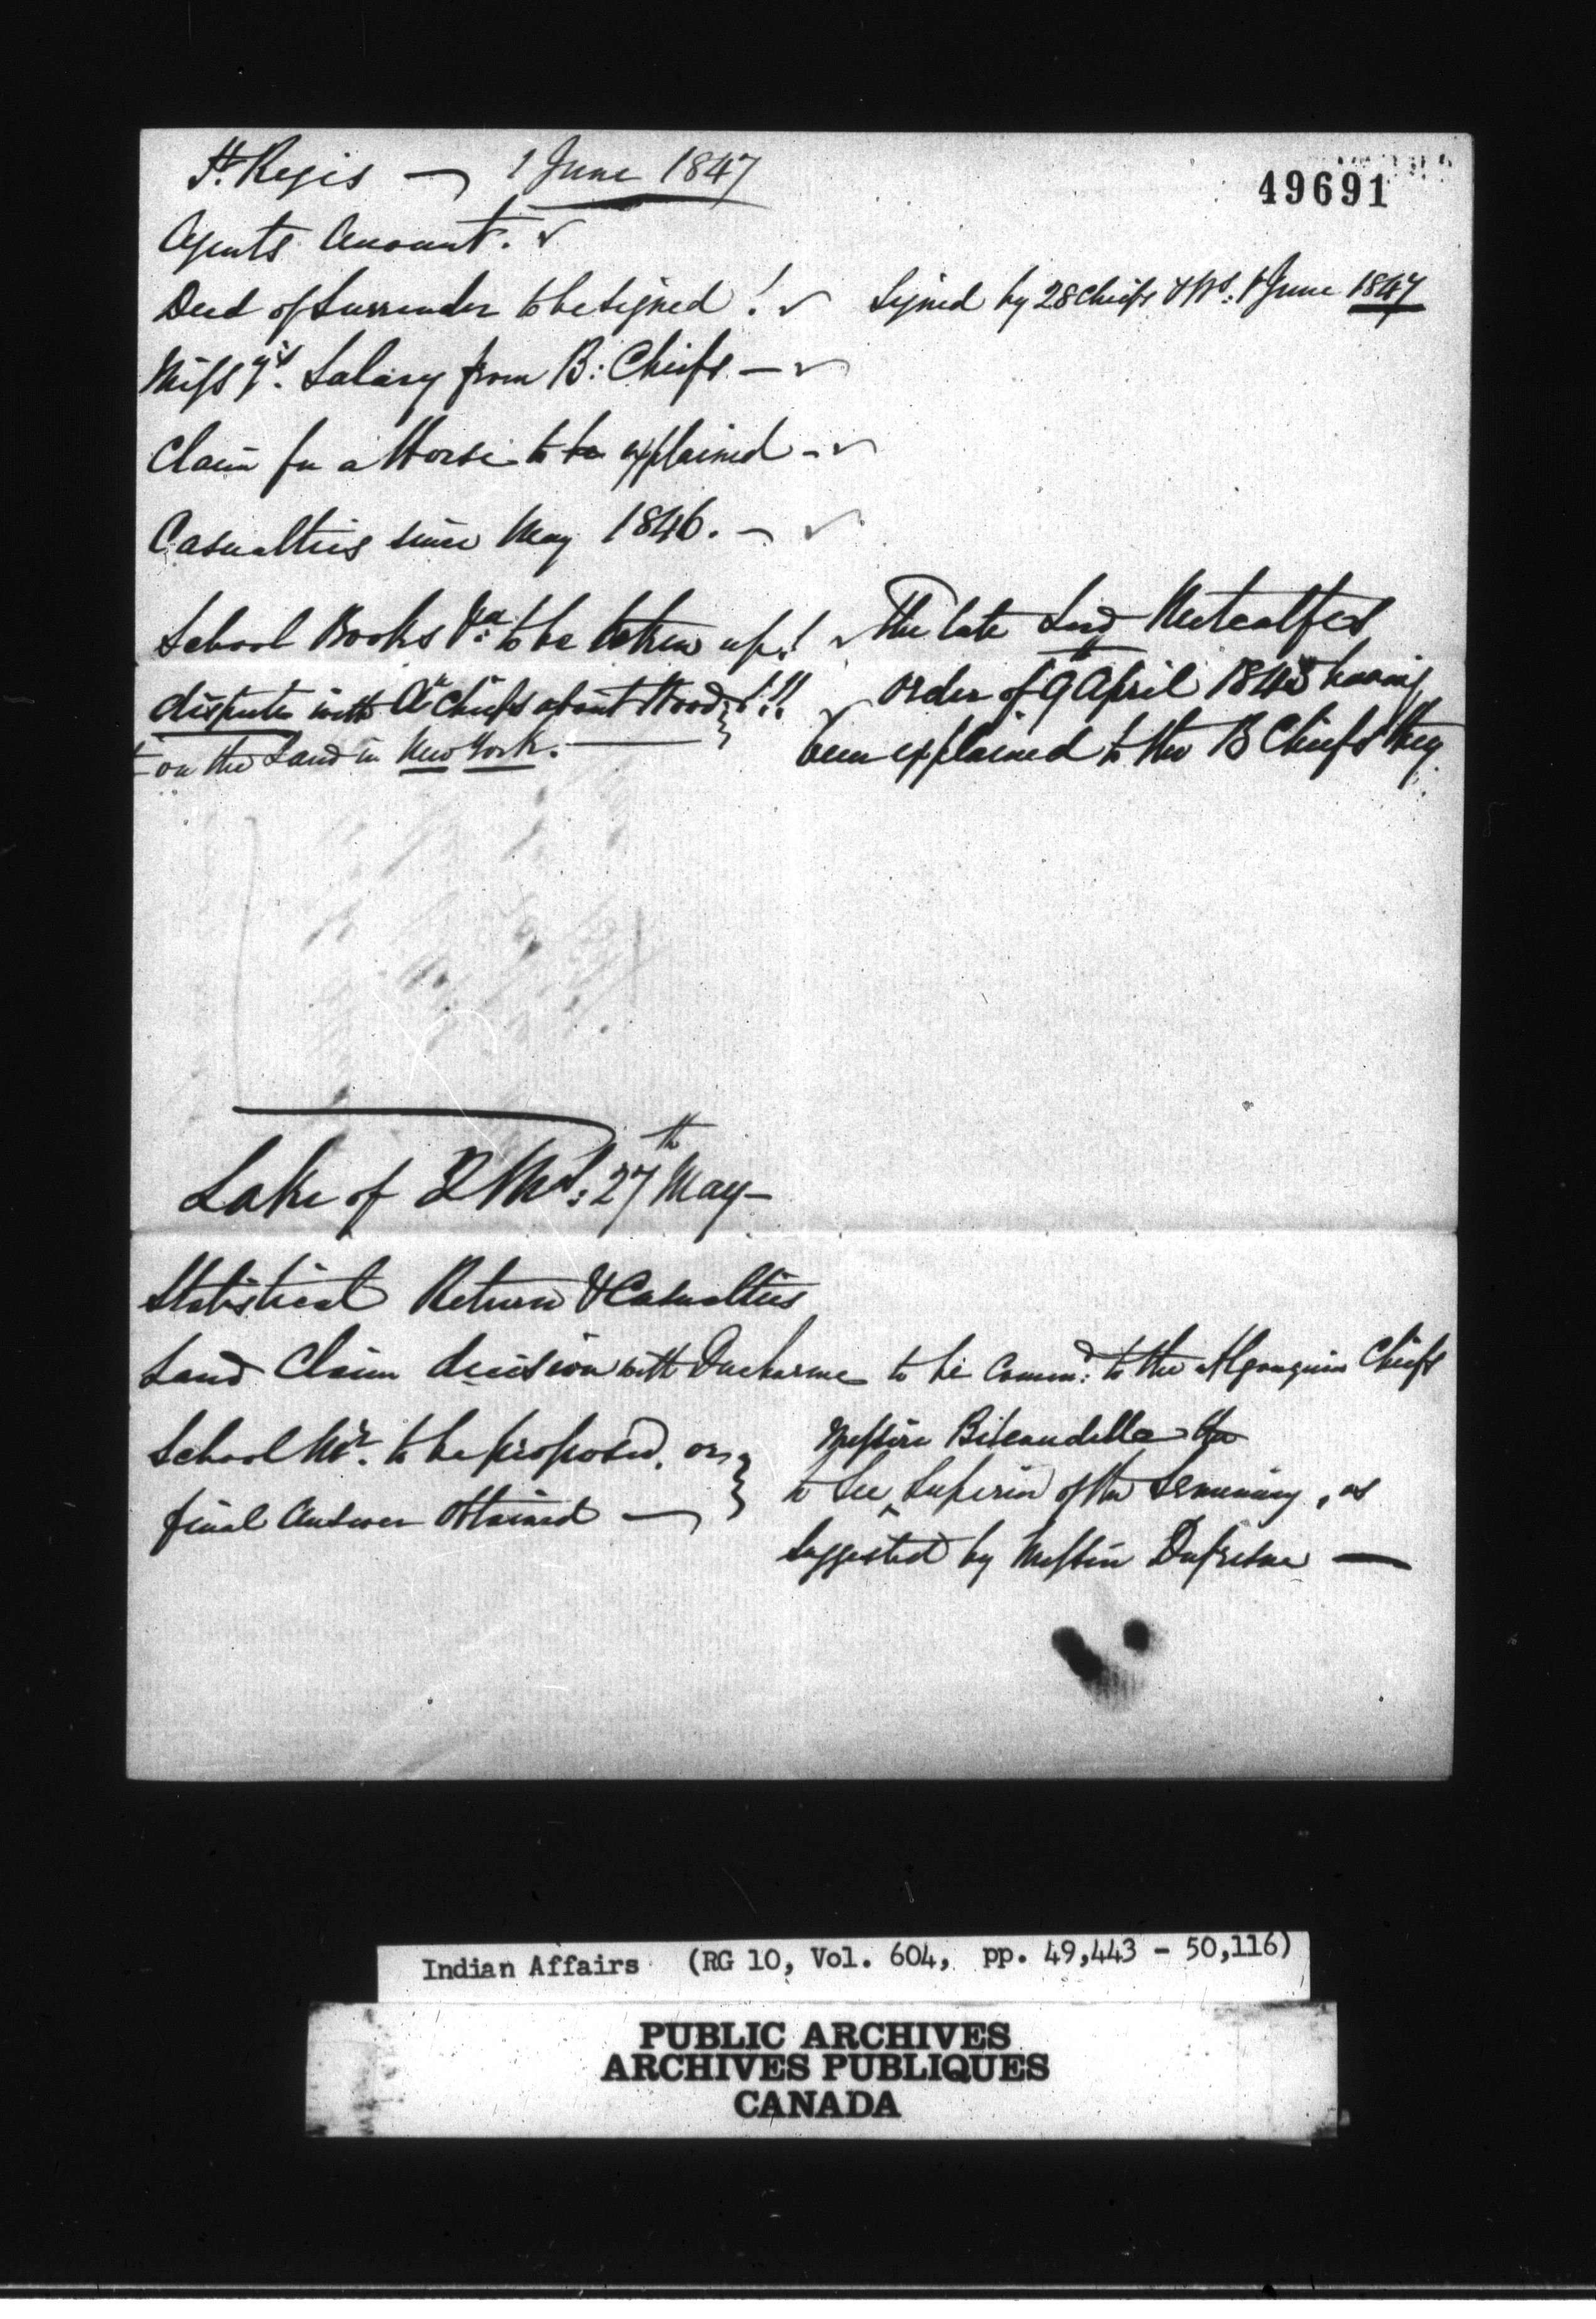 St. Regis — 1 June 1847
49691
Agents Account. ✓
Deed of Surrender to be signed! ✓ Signed by 28 Chiefs & Ws: 1 June 1847
Miss Y's. Salary from B: Chiefs — ✓
Claim for a Horse to be explained — ✓
Casualties since May 1846. — ✓
School Books &a: to be taken up! ✓ The late Lord Metcalfes
dispute with An Chiefs about Wood !!! ✓ order of 9th April 1845 having
on the Land in New York. — been explained to the B Chiefs they
Lake of 2 Ms: 27th May —
Statistical Return & Casualties
Land Claim decision with Ducharme to be Commd: to the Algonquin Chiefs
School Mr. to be proposed, or Messire
to See Superior of the Seminary, as
final Answer obtained —
suggested by Messire Dufresne —
Indian Affairs (RG 10, Vol. 604, pp. 49,443 - 50,116)
PUBLIC ARCHIVES
ARCHIVES PUBLIQUES
CANADA